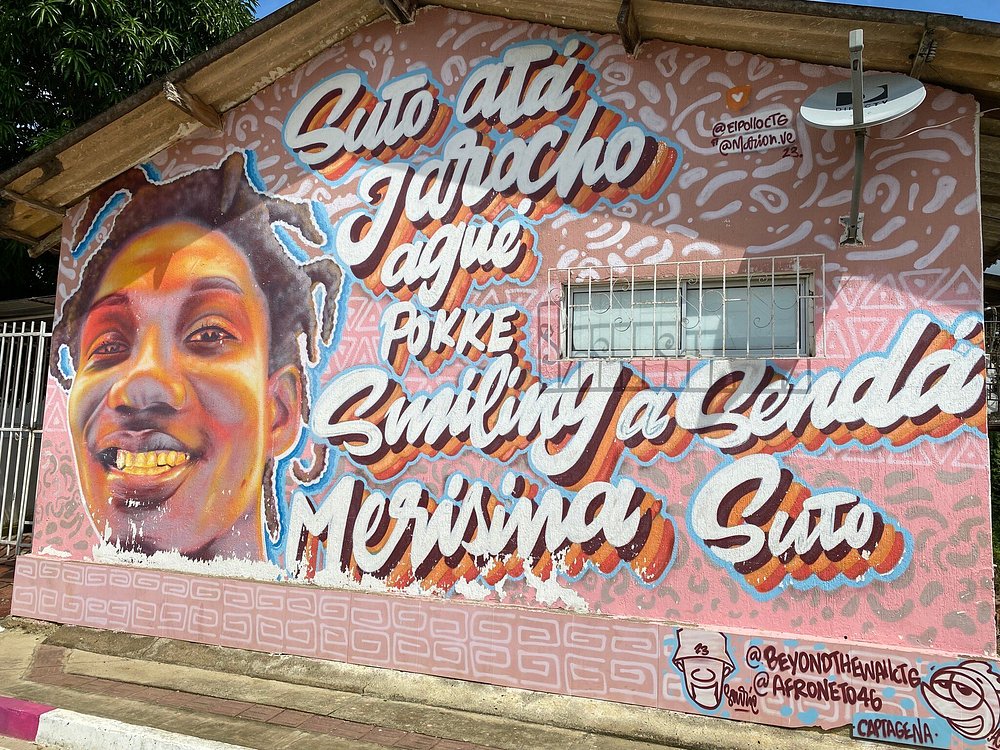 Suto atá
Jarocho
agué
POKKE
Smiling a Sendá
Merisina Suto
@ElpolloCTG
@Marion.ve
23.
DIRECTV
23
Sonríe
@BEYONDTHEWALLCTG
@AFRONETO46
CARTAGENA.